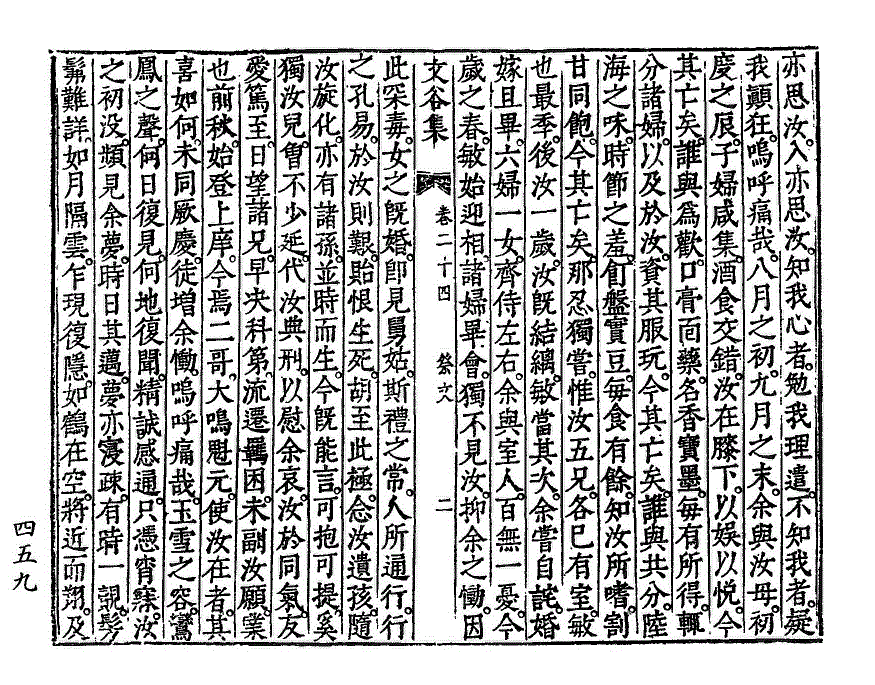 亦思汝。入亦思汝。知我心者。勉我理遣。不知我者。疑
我顚狂。嗚呼痛哉。八月之初。九月之末。余與汝母。初
度之辰。子婦咸集。酒食交錯。汝在膝下。以娛以悅。今
其亡矣。誰與爲歡。口膏面藥。名香寶墨。每有所得。輒
分諸婦。以及於汝。資其服玩。今其亡矣。誰與共分。陸
海之味。時節之羞。飣盤實豆。每食有餘。知汝所嗜。割
甘同飽。今其亡矣。那忍獨嘗。惟汝五兄。各已有室。敏
也最季。後汝一歲。汝旣結縭。敏當其次。余嘗自詫。婚
嫁且畢。六婦一女。齊侍左右。余與室人。百無一憂。今
歲之春。敏始迎相。諸婦畢會。獨不見汝。抑余之慟。因
文谷集 卷二十四 祭文 二
此罙毒。女之旣婚。卽見舅姑。斯禮之常。人所通行。行
之孔易。於汝則艱。貽恨生死。胡至此極。念汝遺孩。隨
汝旋化。亦有諸孫。並時而生。今旣能言。可抱可提。奚
獨汝兒。曾不少延。代汝典刑。以慰余哀。汝於同氣。友
愛篤至。日望諸兄。早决科第。流遷羈困。未副汝願。業
也前秋。始登上庠。今焉二哥。大鳴魁元。使汝在者。其
喜如何。未同厥慶。徒增余慟。嗚呼痛哉。玉雪之容。鸞
鳳之聲。何日復見。何地復聞。精誠感通。只憑宵寐。汝
之初沒。頻見余夢。時日其邁。夢亦寖疎。有時一覿。髣
髴難詳。如月隔雲。乍現復隱。如鶴在空。將近而翔。及
四五九